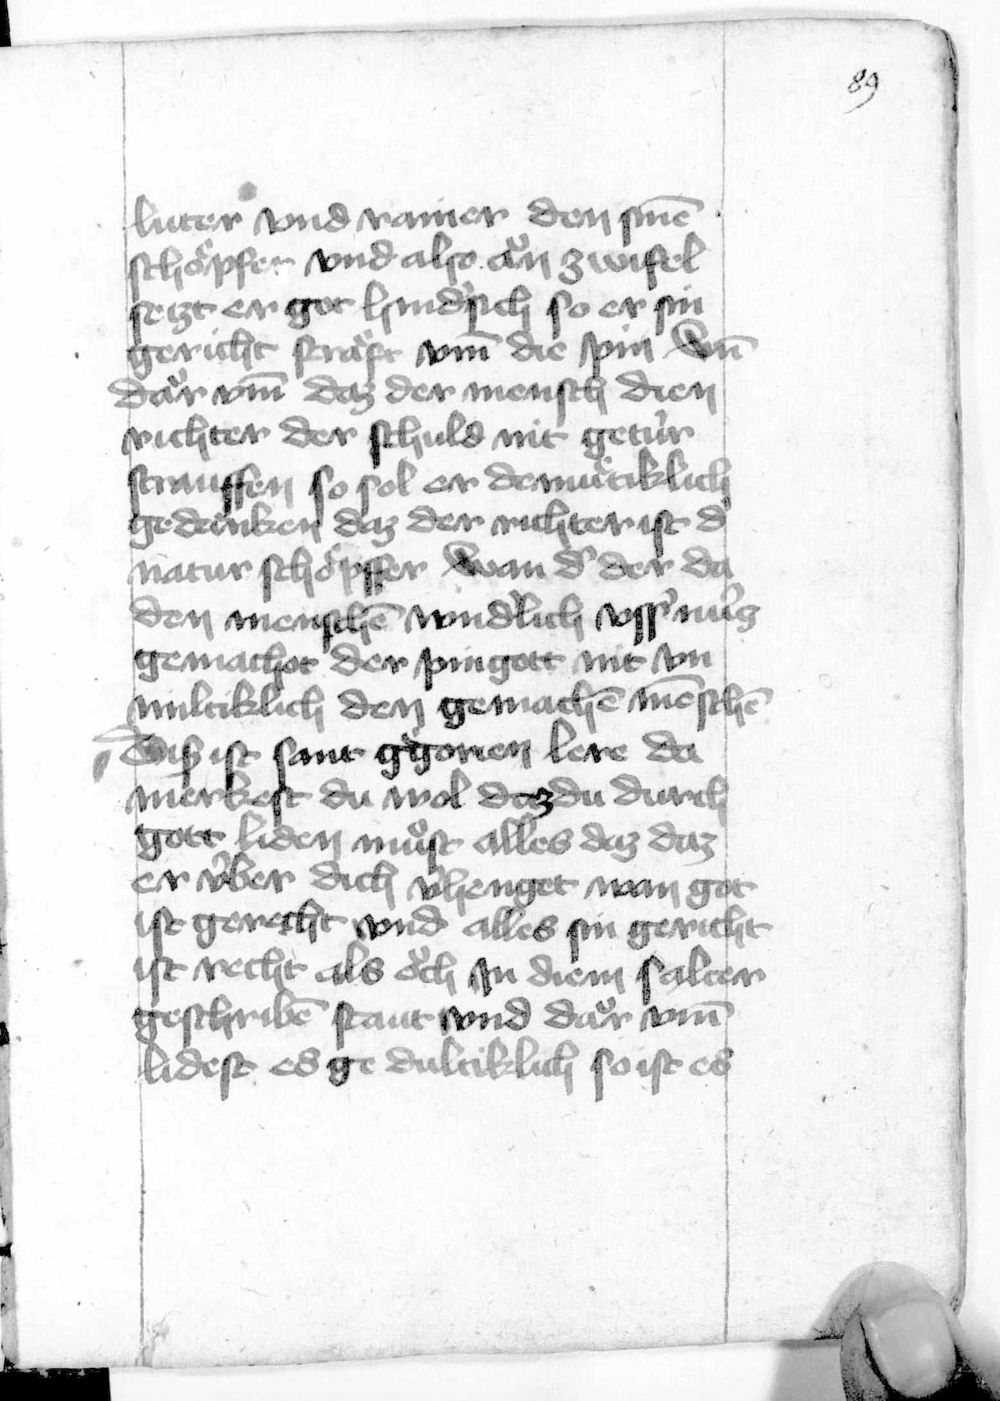 89
luter vnd rainer den sinē
schoͤpfer vnd also aͮn zwifel
setzt er got hindˀsich so er sin
gericht straͮft vm̄ die pin Wn̄
daͮr vm̄ daz der mensch dien
richter der schuld nit getuͤr
strauffen so sol er demuͤtiklich
gedaͤnken daz der richter ist dˀ
natur schoͤpffer Wan dˀ der da
den menschē wndˀlich vssˀ nuͤtz
gemachot der pingott nit vn
miltiklich den gemachē mēschē
Dis ist sant gˀgorien lere da
merkest du wol daz du durch
gott liden muͦst alles daz daz
er vͤber dich vˀhenget wan got
ist gerecht vnd alles sin gericht
ist recht als oͮch jn diem salter
geschribē staut vnd daͮr vm̄
lidest es ge dultiklich so ist es